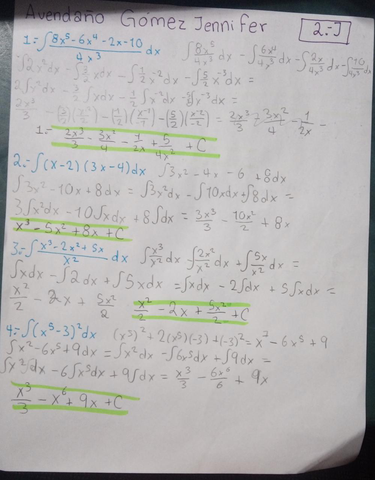 Avendaño Gomez Jennifer
2.-J
1.-∫ 8x⁵-6x⁴-2x-10 / 4x³ dx ∫ 8x⁵/4x³ dx -∫ 6x⁴/4x³ dx -∫ 2x/4x³ dx -∫ 10/4x³
∫2x²dx -∫ 3/2 x dx -∫ 1/2 x⁻² dx -∫ 5/2 x⁻³ dx =
2∫x²dx - 3/2 ∫xdx - 1/2 ∫x⁻²dx - ∫x⁻³dx =
2x³/3 - (x²/2) - (1/2)(x⁻¹/-1) - (5/2)(x⁻²/-2) = 2x³/3 - 3x²/4 - 1/2x -
1.- 2x³/3 - 3x²/4 - 1/2x + 5/4x² + C
2.-∫(x-2)(3x-4)dx ∫3x²-4x-6+8dx
∫3x²-10x+8dx = ∫3x²dx -∫10xdx+∫8dx =
3∫x²dx-10∫xdx+8∫dx = 3x³/3 - 10x²/2 + 8x
x³-5x²+8x+C
3.-∫ x³-2x²+5x / x² dx ∫ x³/x² dx -∫ 2x²/x² dx +∫ 5x/x² dx =
∫xdx -∫2dx +∫5xdx =∫xdx - 2∫dx + 5∫xdx =
x²/2 - 2x + 5x²/2 x²/2 - 2x + 5x²/2 + C
4.-∫(x⁵-3)²dx (x⁵)²+2(x⁵)(-3)+(-3)²=x⁷-6x⁵+9
∫x²-6x⁵+9dx =∫x²dx -∫6x⁵dx+∫9dx =
∫x²dx-6∫x⁵dx+9∫dx = x³/3 - 6x⁶/6 + 9x
x³/3 - x⁶ + 9x + C